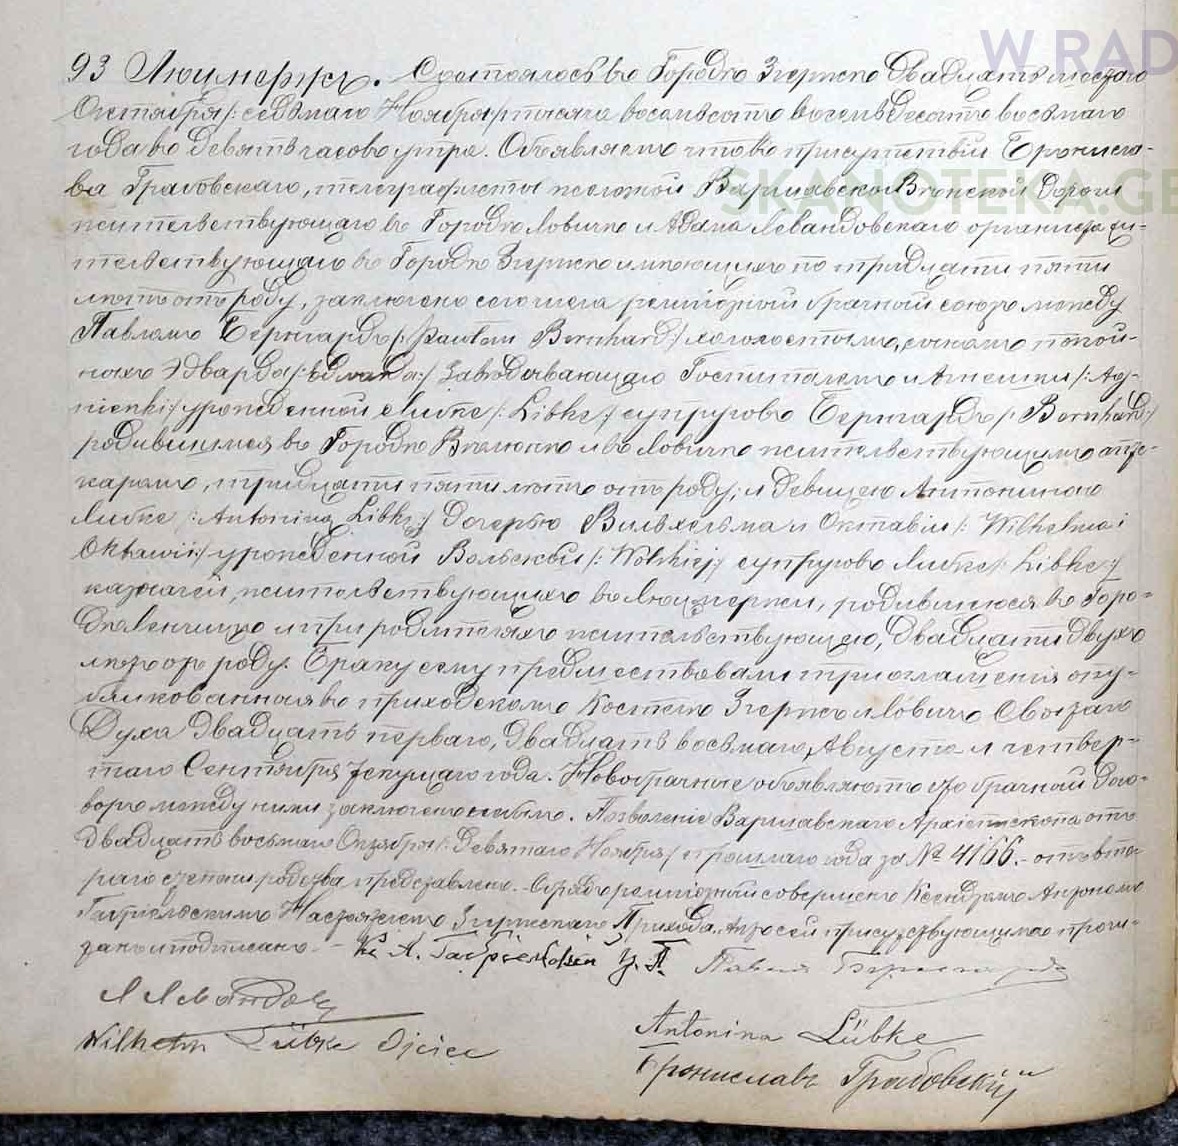 W RAD
SKANOTEKA.GE
93 Люцмержъ. Состоялось въ Городѣ Згержѣ Двадцать шестаго
Октября /: седьмаго Ноября/ тысяча восемьсотъ восемьдесятъ восьмаго
года въ девять часовъ утра. Объявляемъ что въ присутствіи Бронисла-
ва Грабовскаго, телеграфиста желѣзной Варшавско Вѣнской дороги
жительствующаго въ Городѣ Ловичѣ и Адама Левандовскаго органиста жи-
тельствующаго въ Городѣ Згержѣ имѣющихъ по тридцати пяти
лѣтъ отъ роду, заключенъ сего числа религіозный брачный союзъ между
Павломъ Бернгардъ /: Pawłem Bernhard/ холостымъ, сыномъ покой-
ныхъ Эдварда /: Edwarda:/ Завѣдывающаго Госпиталемъ и Агнешки /: Ag-
nieszki/ урожденной Либке /: Libke:/ супруговъ Бернгардъ /: Bernhard:/
родившимся въ Городѣ и въ Ловичѣ жительствующимъ апте-
каремъ, тридцати пяти лѣтъ отъ роду; и Девицею Антониною
Либке /: Antoniną Libke:/ дочерью Вильхельма и Октавіи /: Wilhelma i
Oktawii:/ урожденной Вольской /: Wolskiej:/ супруговъ Либке /: Libke:/
жительствующихъ въ Люцмержи, родившеюся въ Горо-
дѣ Ленчицѣ и при родителяхъ жительствующею, двадцати двухъ
лѣтъ отъ роду. Браку сему предшествовали три оглашенія опу-
бликованныя въ приходскомъ Костелѣ Згержѣ и Ловичѣ Святаго
Духа двадцать перваго, двадцать восьмаго, Августа и четвер-
таго Сентября текущаго года. Новобрачные объявляютъ что брачный дого-
воръ между ними заключенъ небылъ. Позволеніе Варшавскаго Архіепископа отъ
двадцать восьмаго Октября /: Девятаго Ноября/ прошлаго года за № 4166. - отъ вто-
раго степени родства представлено. - Обрядъ религіозный совершенъ Ксендзомъ Антономъ
Настоятелемъ Згержскаго Прихода. Актъ сей присутствующимъ прочи-
танъ и подписанъ. - Кс. А. У. П. Павелъ Бернгардъ
А Левандов
Wilhelm Lübke Ojciec
Antonina Lübke
Брониславъ Грабовскій